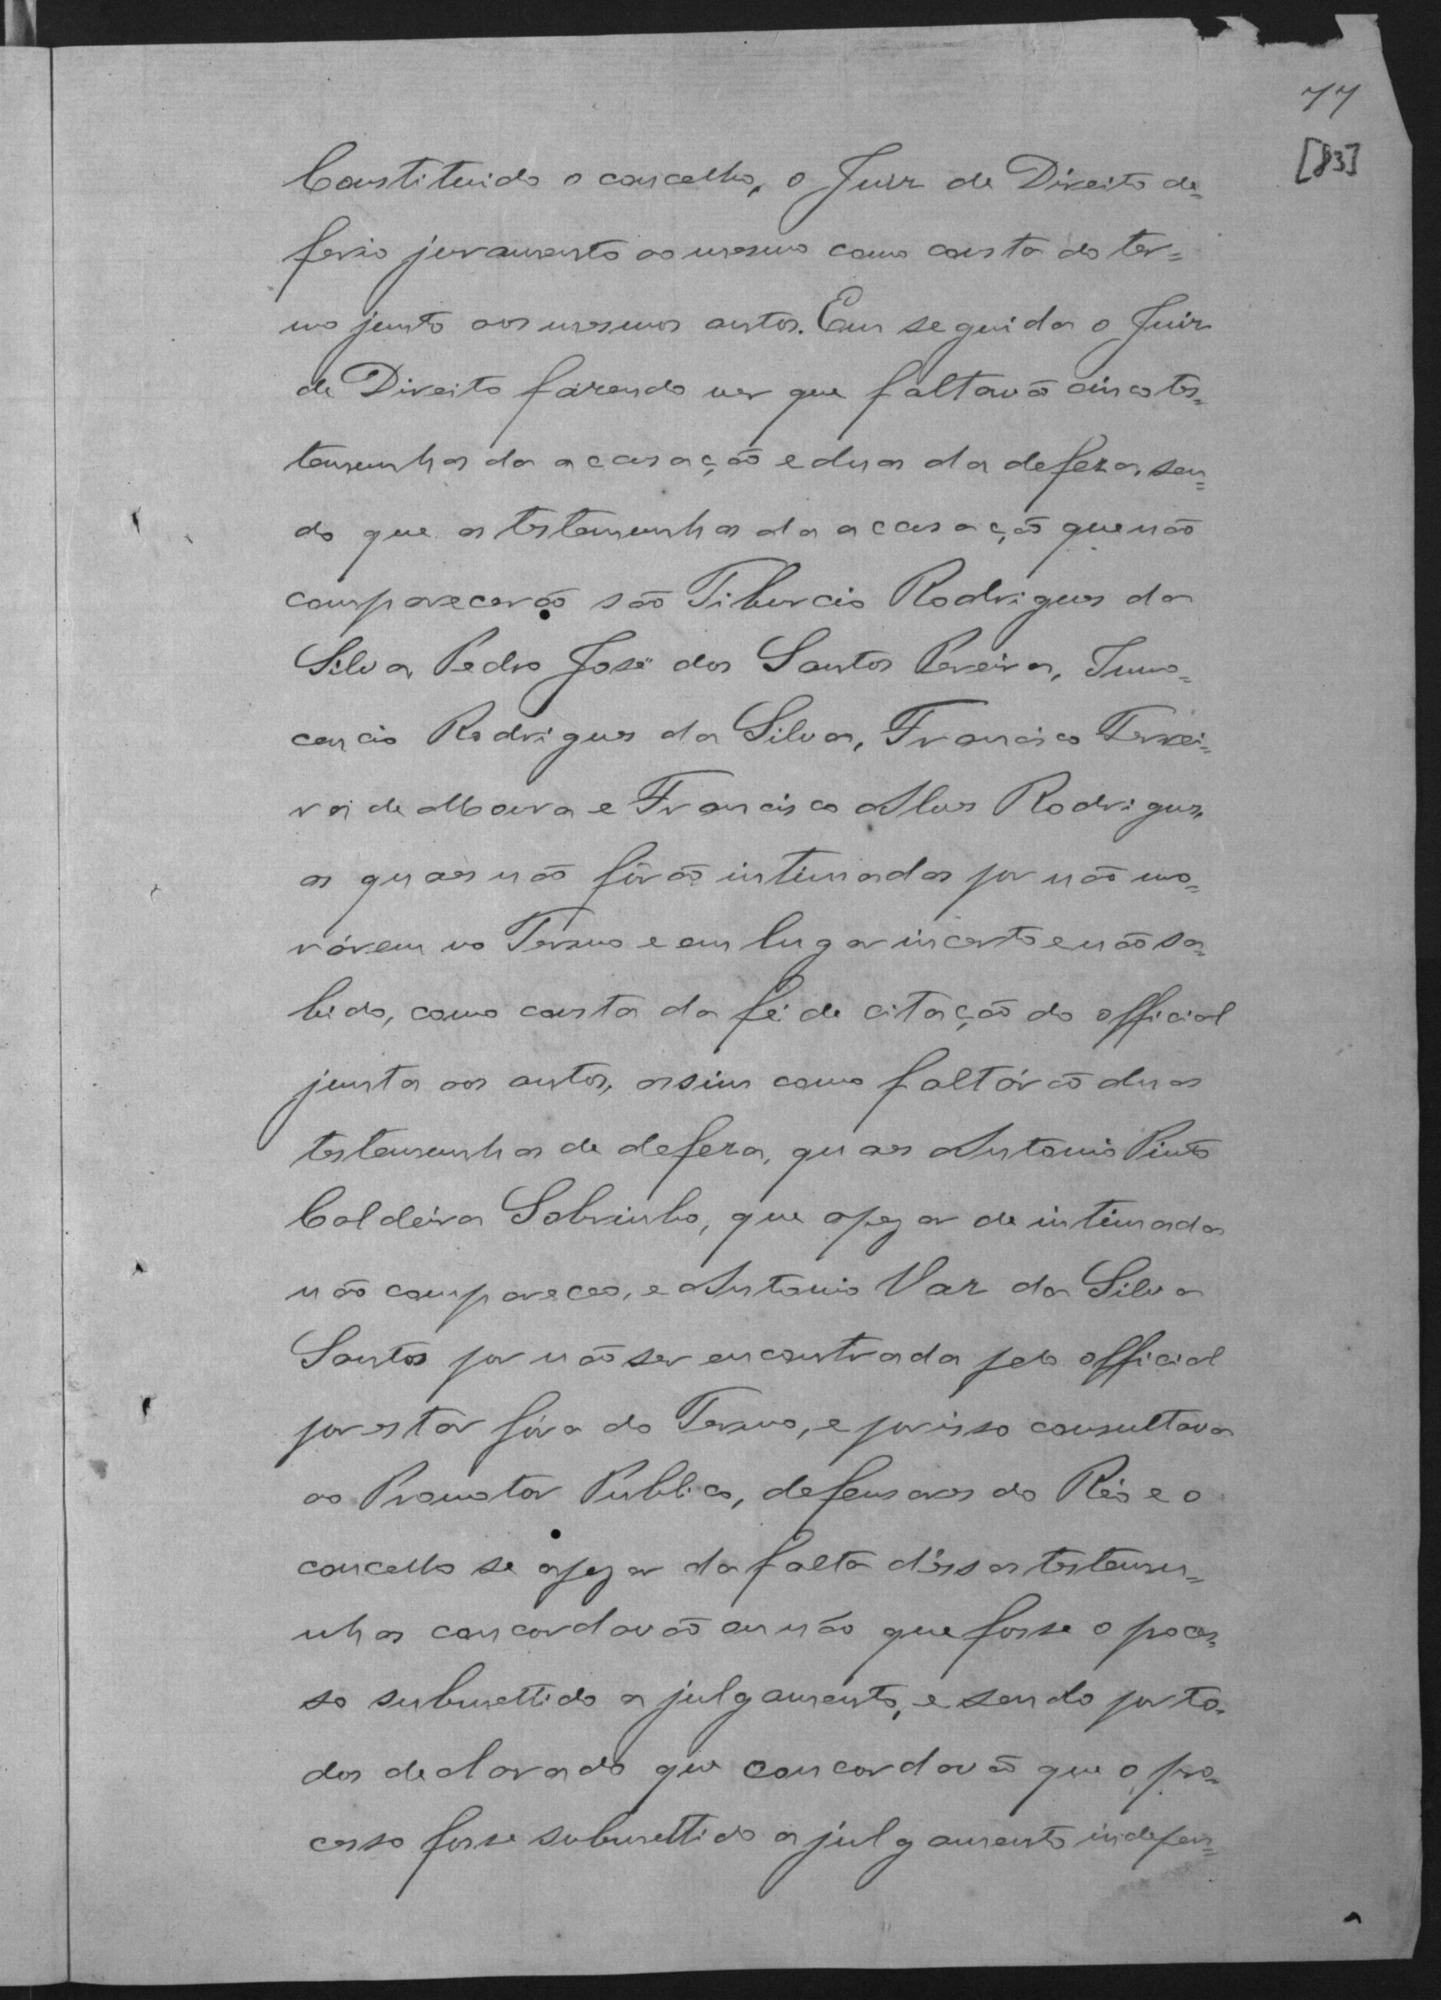 77
[83]
Constituido o concelho, o Juiz de Direito de=
ferio juramento ao mesmo como consta do ter=
mo junto aos mesmos autos. Em seguida o Juiz
de Direito fazendo ver que faltavão cinco tes=
temunhas da acusação e duas da defeza, sen=
do que as testemunhas da acusação que não
comparecerão são Tiburcio Rodrigues da
Silva, Pedro José dos Santos Pereira, Inno=
cencio Rodrigues da Silva, Francisco Teixei=
ra de Moura e Francisco Alves Rodrigues,
as quaes não fôrão intimadas por não mo=
rárem no Termo e em lugar incerto e não sa=
bido, como consta da fé de citação do official
junta aos autos, assim como faltárão duas
testemunhas de defeza, quaes Antonio Pinto
Caldeira Sobrinho, que apezar de intimada
não compareceo, e Antonio Vaz da Silva
Santos por não ser encontrada pelo official
por estar fóra do Termo, e por isso consultava
ao Promotor Publico, defensores do Réo e o
concelho se apezar da falta déssas testemu=
nhas concordavão ou não que fosse o proces=
so submettido a julgamento, e sendo por to=
dos declarado que concordavão que o pro=
cesso fosse submettido a julgamento indepen=